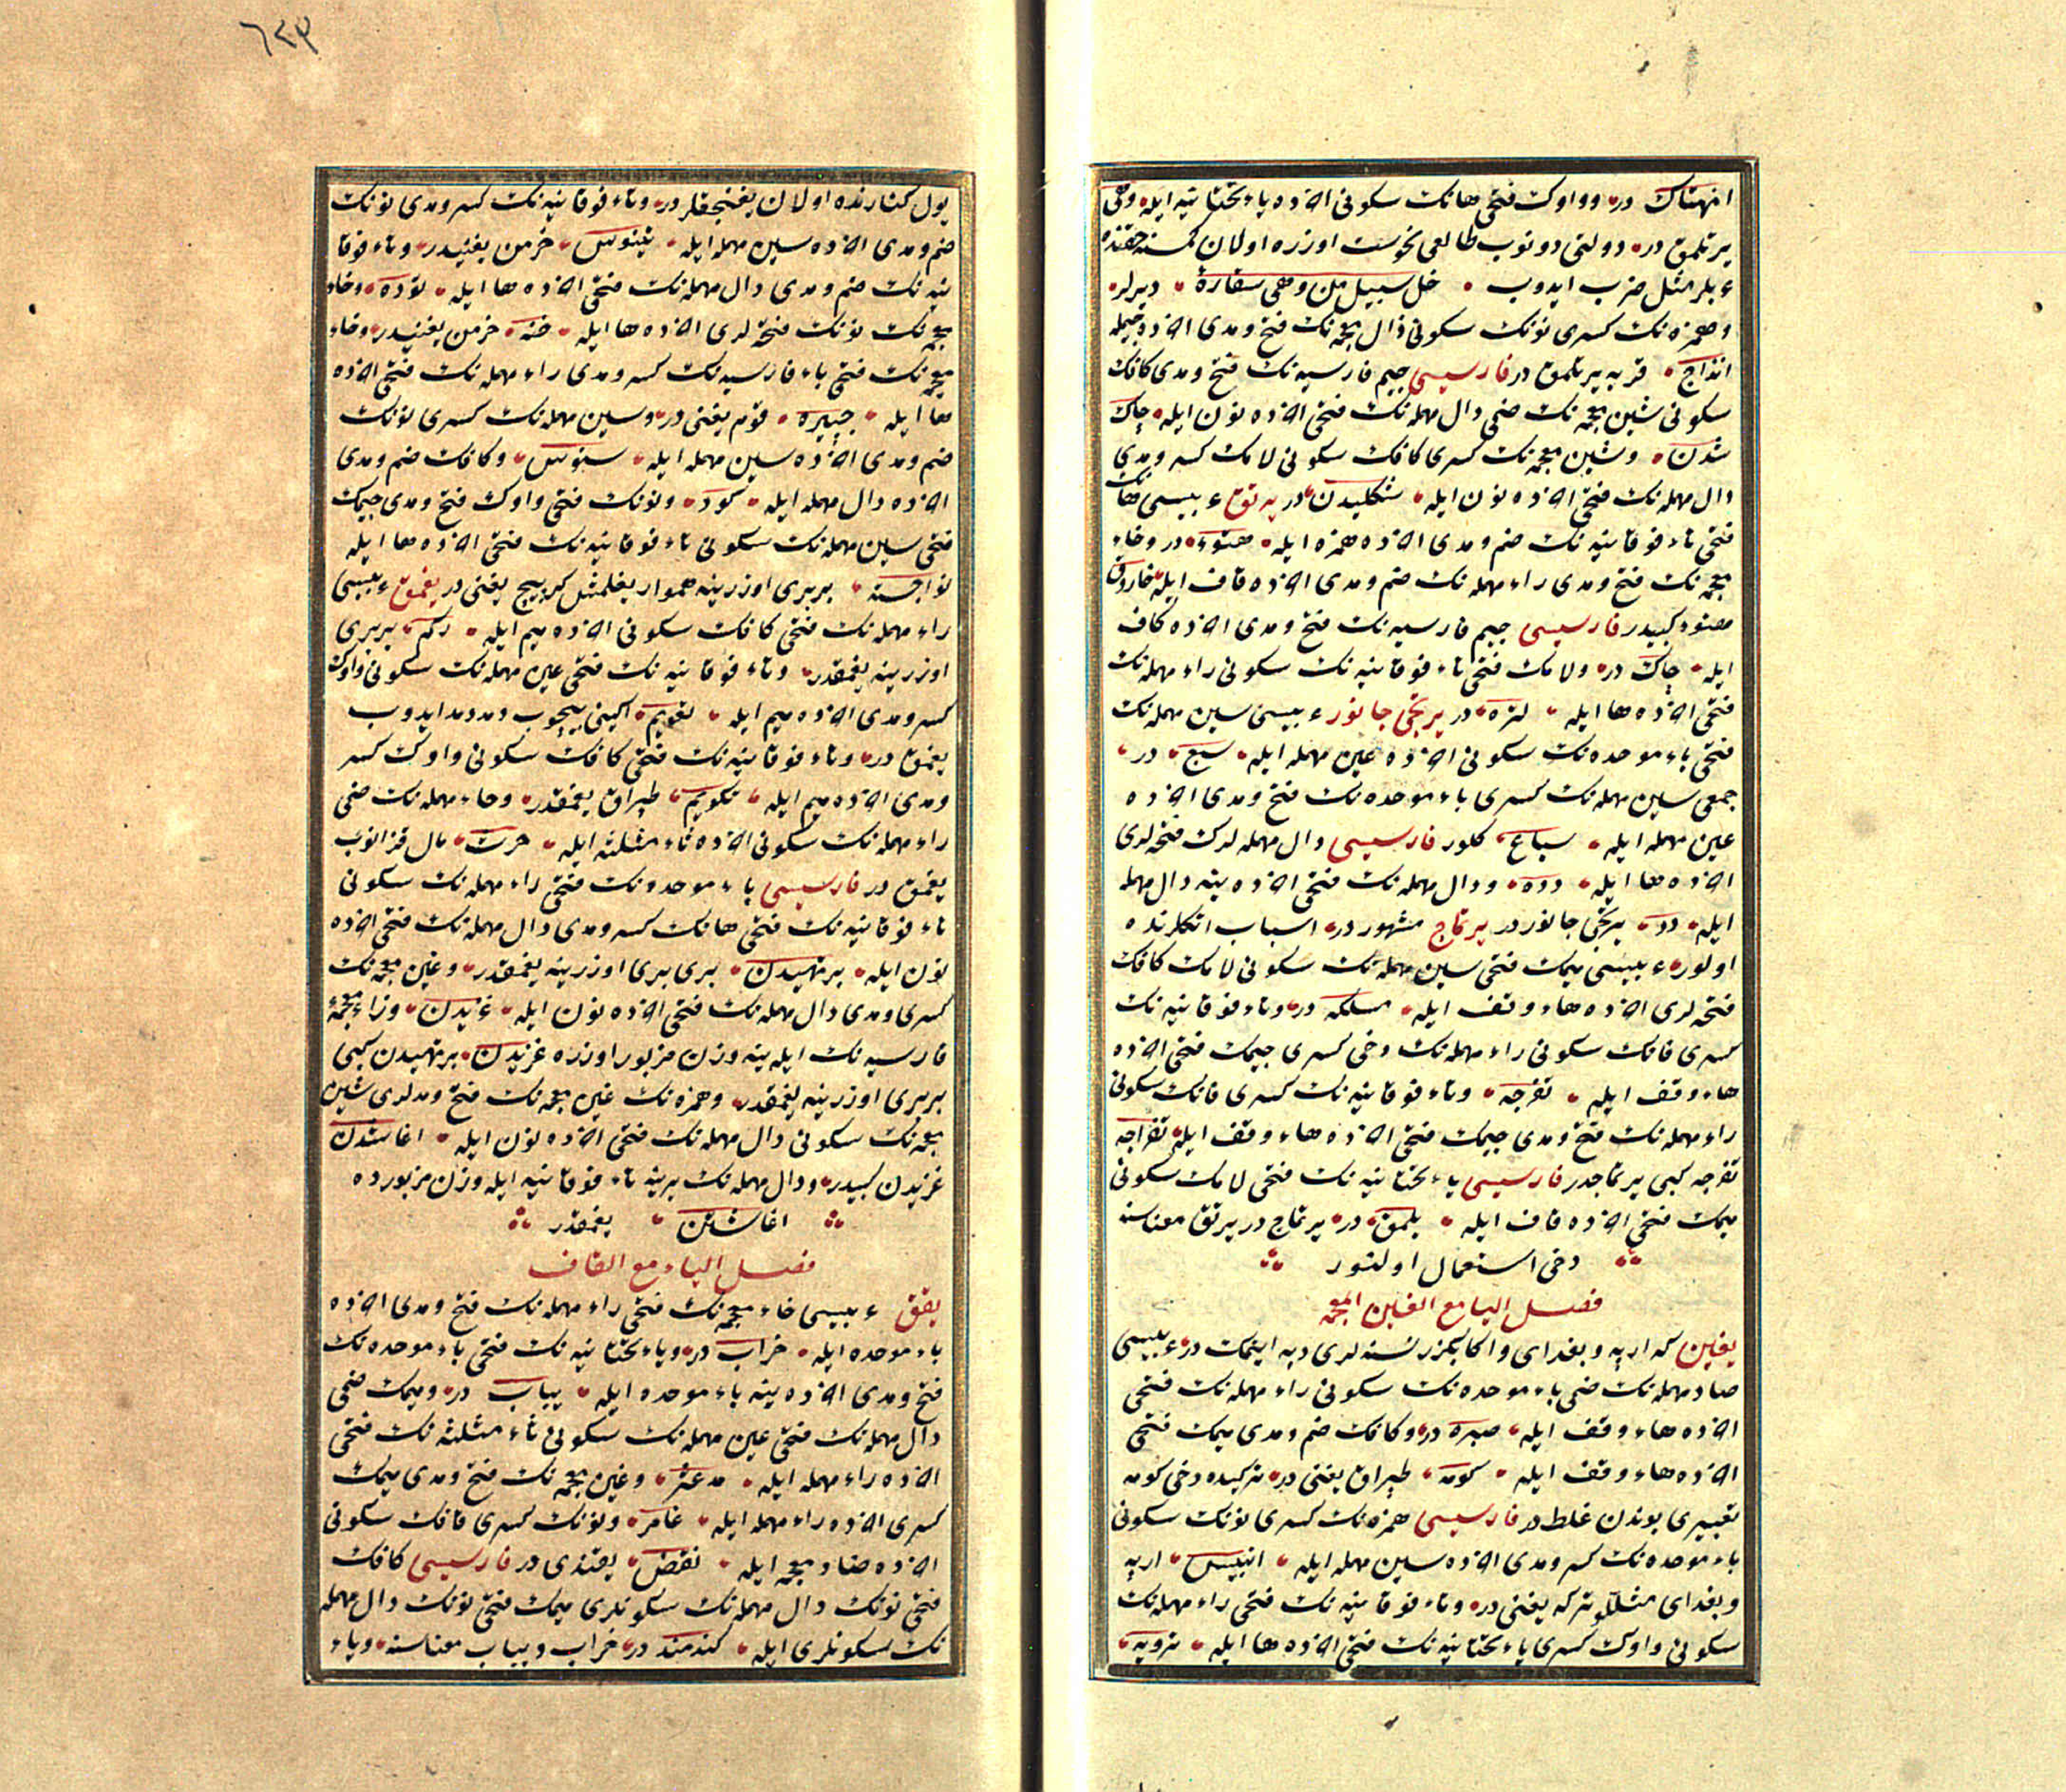 انهتاك در وواوك فتحى هانك سكونى اخرده ياء تحتانيه ايله وهى
يرتلمق در دولتى دونوب طالعى نحوست اوزره اولان كمسنه حقنده
ءبلر مثل ضرب ايدوب خل سبيل من وهى سقاؤه ديرلر
وهمزه نك كسرى نونك سكونى ذال معجمه نك فتح ومدى اخرده جيمله
انذاج قربه يرتلمق در فارسيسى جيم فارسيه نك فتح ومدى كافك
سكونى شين معجمه نك ضمى دال مهمله نك فتحى اخرده نون ايله چاك
شدن وشين معجمه نك كسرى كافك سكونى لامك كسر ومدى
دال مهمله نك فتحى اخرده نون ايله شكليدن در يرتق ءبيسى هانك
فتحى تاء فوقانيه نك ضم ومدى اخرده همزه ايله هتوء در وخاء
معجمه نك فتح ومدى راء مهمله نك ضم ومدى اخرده قاف ايله خاروق
فارسيسى جيم فارسيه نك فتح ومدى اخرده كاف
ايله چاك در ولامك فتحى تاء فوقانيه نك سكونى راء مهمله نك
فتحى اخرده ها ايله لتره در يرتجى جانور ءبيسى سين مهمله نك
فتحى باء موحده نك سكونى اخرده عين مهمله ايله سبع در
جمعى سين مهمله نك كسرى باء موحده نك فتح ومدى اخرده
عين مهمله ايله سباع كلور فارسيسى دال مهمله لرك فتحه لرى
اخرده ها ايله دده ودال مهمله نك فتحى اخرده ينه دال مهمله
ايله دد يرتجى جانور در يرتماج مشهور در اسباب اتكلرنده
اولور ءبيسى ميمك فتحى سين مهمله نك سكونى لامك كافك
فتحه لرى اخرده هاء وقف ايله مسلكه در وتاء فوقانيه نك
كسرى فانك سكونى راء مهمله نك دخى كسرى جيمك فتحى اخرده
هاء وقف ايله تفرجه وتاء فوقانيه نك كسرى فانك سكونى
راء مهمله نك فتح ومدى جيمك فتحى اخرده هاء وقف ايله تفراجه
تفرجه كبى يرتماجدر فارسيسى ياء تحتانيه نك فتحى لامك سكونى
ميمك فتحى اخرده قاف ايله يلمق در يرتماج در يرتق معناسنه
دخى استعمال اولنور
فصل اليا مع الغين المعجمه
يغين كه اربه وبغداى واكا بكزر نسنه لرى دبه ايتمك در ءبيسى
صاد مهمله نك ضمى باء موحده نك سكونى راء مهمله نك فتحى
اخرده هاء وقف ايله صبره در وكافك ضم ومدى ميمك فتحى
اخرده هاء وقف ايله كومه طپراق يغنى در تركيده دخى كومه
تعبيرى بوندن غلط در فارسيسى همزه نك كسرى نونك سكونى
باء موحده نك كسر ومدى اخرده سين مهمله ايله انبيس اربه
وبغداى مثللو تركه يغنى در وتاء فوقانيه نك فتحى راء مهمله نك
سكونى واوك كسرى ياء تحتانيه نك فتحى اخرده ها ايله ترويه
٦٢٣
يول كنارنده اولان يغنجقلر در وتاء فوقانيه نك كسر ومدى نونك
ضم ومدى اخرده سين مهمله ايله تينوس خرمن يغنيدر وتاء فوقا
نيه نك ضم ومدى دال مهمله نك فتحى اخرده ها ايله توده وخاء
معجمه نك نونك فتحه لرى اخرده ها ايله خنه خرمن يغنيدر وخاء
معجمه نك فتحى باء فارسيه نك كسر ومدى راء مهمله نك فتحى اخرده
ها ايله خپيره قوم يغنى در وسين مهمله نك كسرى نونك
ضم ومدى اخرده سين مهمله ايله سنوس وكافك ضم ومدى
اخرده دال مهمله ايله كود ونونك فتحى واوك فتح ومدى جيمك
فتحى سين مهمله نك سكونى تاء فوقانيه نك فتحى اخرده ها ايله
نواجسته بربرى اوزرينه هموار يغلمش كرپيج يغنى در يغمق ءبيسى
راء مهمله نك فتحى كافك سكونى اخرده ميم ايله ركم بربرى
اوزرينه يغمقدر وتاء فوقانيه نك فتحى عين مهمله نك سكونى واوك
كسر ومدى اخرده ميم ايله تعويم اكينى بيچوب ومدمد ايدوب
يغمق در وتاء فوقانيه نك فتحى كافك سكونى واوك كسر
ومدى اخرده ميم ايله تكويم طپراق يغمقدر وحاء مهمله نك ضمى
راء مهمله نك سكونى اخرده ثاء مثلثه ايله حرث مال قزانوب
يغمق در فارسيسى باء موحده نك فتحى راء مهمله نك سكونى
تاء فوقانيه نك فتحى هانك كسر ومدى دال مهمله نك فتحى اخرده
نون ايله برتهيدن برى برى اوزرينه يغمقدر وغين معجمه نك
كسرى ومدى دال مهمله نك فتحى اخرده نون ايله غيدن وزاء معجمهٔ
فارسيه نك ايله ينه وزن مزبور اوزره غژيدن برتهيدن كبى
بربرى اوزرينه يغمقدر وهمزه نك غين معجمه نك فتح ومدلرى شين
معجمه نك سكونى دال مهمله نك فتحى اخرده نون ايله اغاشدن
غژيدن كبيدر ودال مهمله نك يرينه تاء فوقانيه ايله وزن مزبورده
اغاشتن يغمقدر
فصل الياء مع القاف
يقق ءبيسى خاء معجمه نك فتحى راء مهمله نك فتح ومدى اخرده
باء موحده ايله خراب در وياء تحتانيه نك فتحى باء موحده نك
فتح ومدى اخرده ينه باء موحده ايله يباب در وميمك ضمى
دال مهمله نك فتحى عين مهمله نك سكونى ثاء مثلثه نك فتحى
اخرده راء مهمله ايله مدعثر وغين معجمه نك فتح ومدى ميمك
كسرى اخرده راء مهمله ايله غامر ونونك كسرى قافك سكونى
اخرده ضاد معجمه ايله نقض يقندى در فارسيسى كافك
فتحى نونك دال مهمله نك سكونلرى ميمك فتحى نونك دال مهمله
نك سكونلرى ايله كندمند در خراب ويباب معناسنه وياء